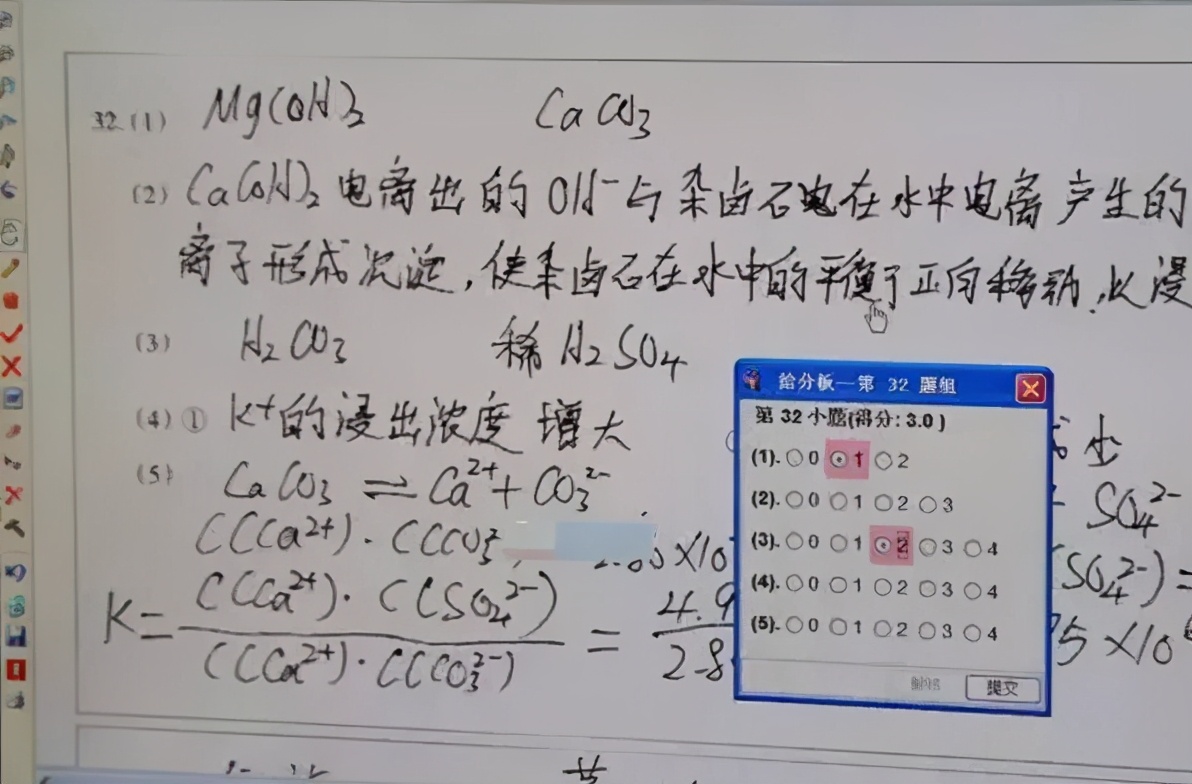 32.(1) Mg(OH)₂ CaCO₃
(2) Ca(OH)₂电离出的OH⁻与杂卤石电在水中电离产生的
离子形成沉淀,使杂卤石在水中的平衡了正向移动.从浸
(3) H₂CO₃ 稀H₂SO₄
(4) ① K⁺的浸出浓度 增大
少
(5) CaCO₃ ⇌ Ca²⁺+CO₃²⁻
SO₄²⁻
C(Ca²⁺)·C(CO₃²⁻
×10
(SO₄²⁻)=
K= C(Ca²⁺)·C(SO₄²⁻) / C(Ca²⁺)·C(CO₃²⁻) = 4.9 / 2.8
5×10
给分板—第 32 题组
第 32 小题(得分: 3.0)
(1). 0 1 2
(2). 0 1 2 3
(3). 0 1 2 3 4
(4). 0 1 2 3 4
(5). 0 1 2 3 4
提交